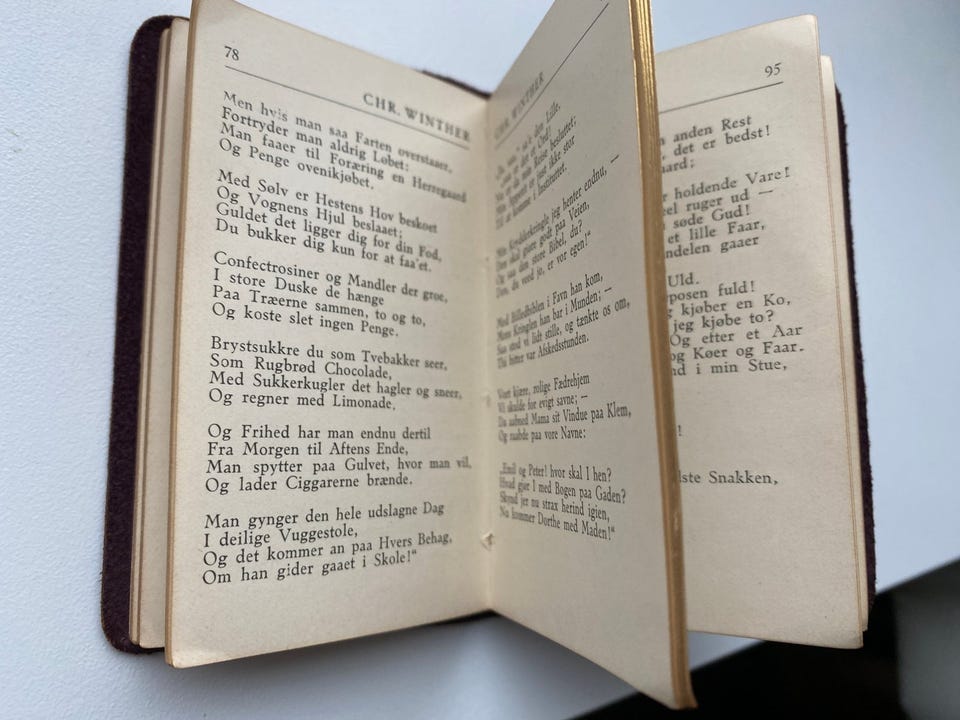 78
CHR. WINTHER
Men hvis man saa Farten overstaaer,
Fortryder man aldrig Løbet:
Man faaer til Foræring en Herregaard
Og Penge ovenikjøbet.
Med Sølv er Hestens Hov beskoet
Og Vognens Hjul beslaaet;
Guldet det ligger dig for din Fod,
Du bukker dig kun for at faa'et.
Confectrosiner og Mandler der groe,
I store Duske de hænge
Paa Træerne sammen, to og to,
Og koste slet ingen Penge.
Brystsukkre du som Tvebakker seer,
Som Rugbrød Chocolade,
Med Sukkerkugler det hagler og sneer,
Og regner med Limonade.
Og Frihed har man endnu dertil
Fra Morgen til Aftens Ende,
Man spytter paa Gulvet, hvor man vil,
Og lader Ciggarerne brænde.
Man gynger den hele udslagne Dag
I deilige Vuggestole,
Og det kommer an paa Hvers Behag,
Om han gider gaaet i Skole!"
CHR. WINTHER
sa'e den Lille,
er det et Ord!
min Reise besluttet;
Min Appetit er just ikke stor
Til at komme i Instituttet.
Min Krydderkringle jeg henter endnu, —
Den skal giøre godt paa Veien,
Og saa den store Bibel, du?
Den, du veed jo, er vor egen!"
Med Billedbiblen i Favn han kom,
Mens Kringlen han bar i Munden; —
Saa stod vi lidt stille, og tænkte os om,
Thi bitter var Afskedsstunden.
Vort kjære, rolige Fædrehjem
Vi skulde for evigt savne; —
Da aabned Mama sit Vindue paa Klem,
Og raabde paa vore Navne:
„Emil og Peter! hvor skal I hen?
Hvad gjør I med Bogen paa Gaden?
Skynd jer nu strax herind igien,
Nu kommer Dorthe med Maden!"
95
anden Rest
, det er bedst!
aard;
holdende Vare!
eel ruger ud —
søde Gud!
et lille Faar,
ndelen gaaer
Uld.
posen fuld!
kjøber en Ko,
jeg kjøbe to?
Og efter et Aar
og Køer og Faar.
nd i min Stue,
!
dste Snakken,